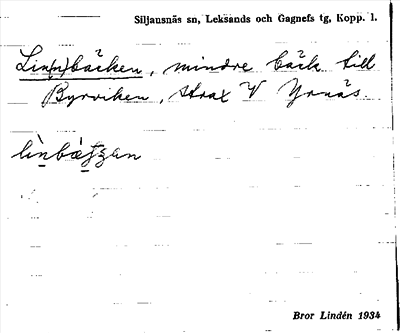 Siljansnäs sn, Leksands och Gagnefs tg, Kopp. l.
Lin(n)bäcken, mindre bäck till
Byrviken, strax V Yrnäs.
lìnbætʒen
Bror Lindén 1934